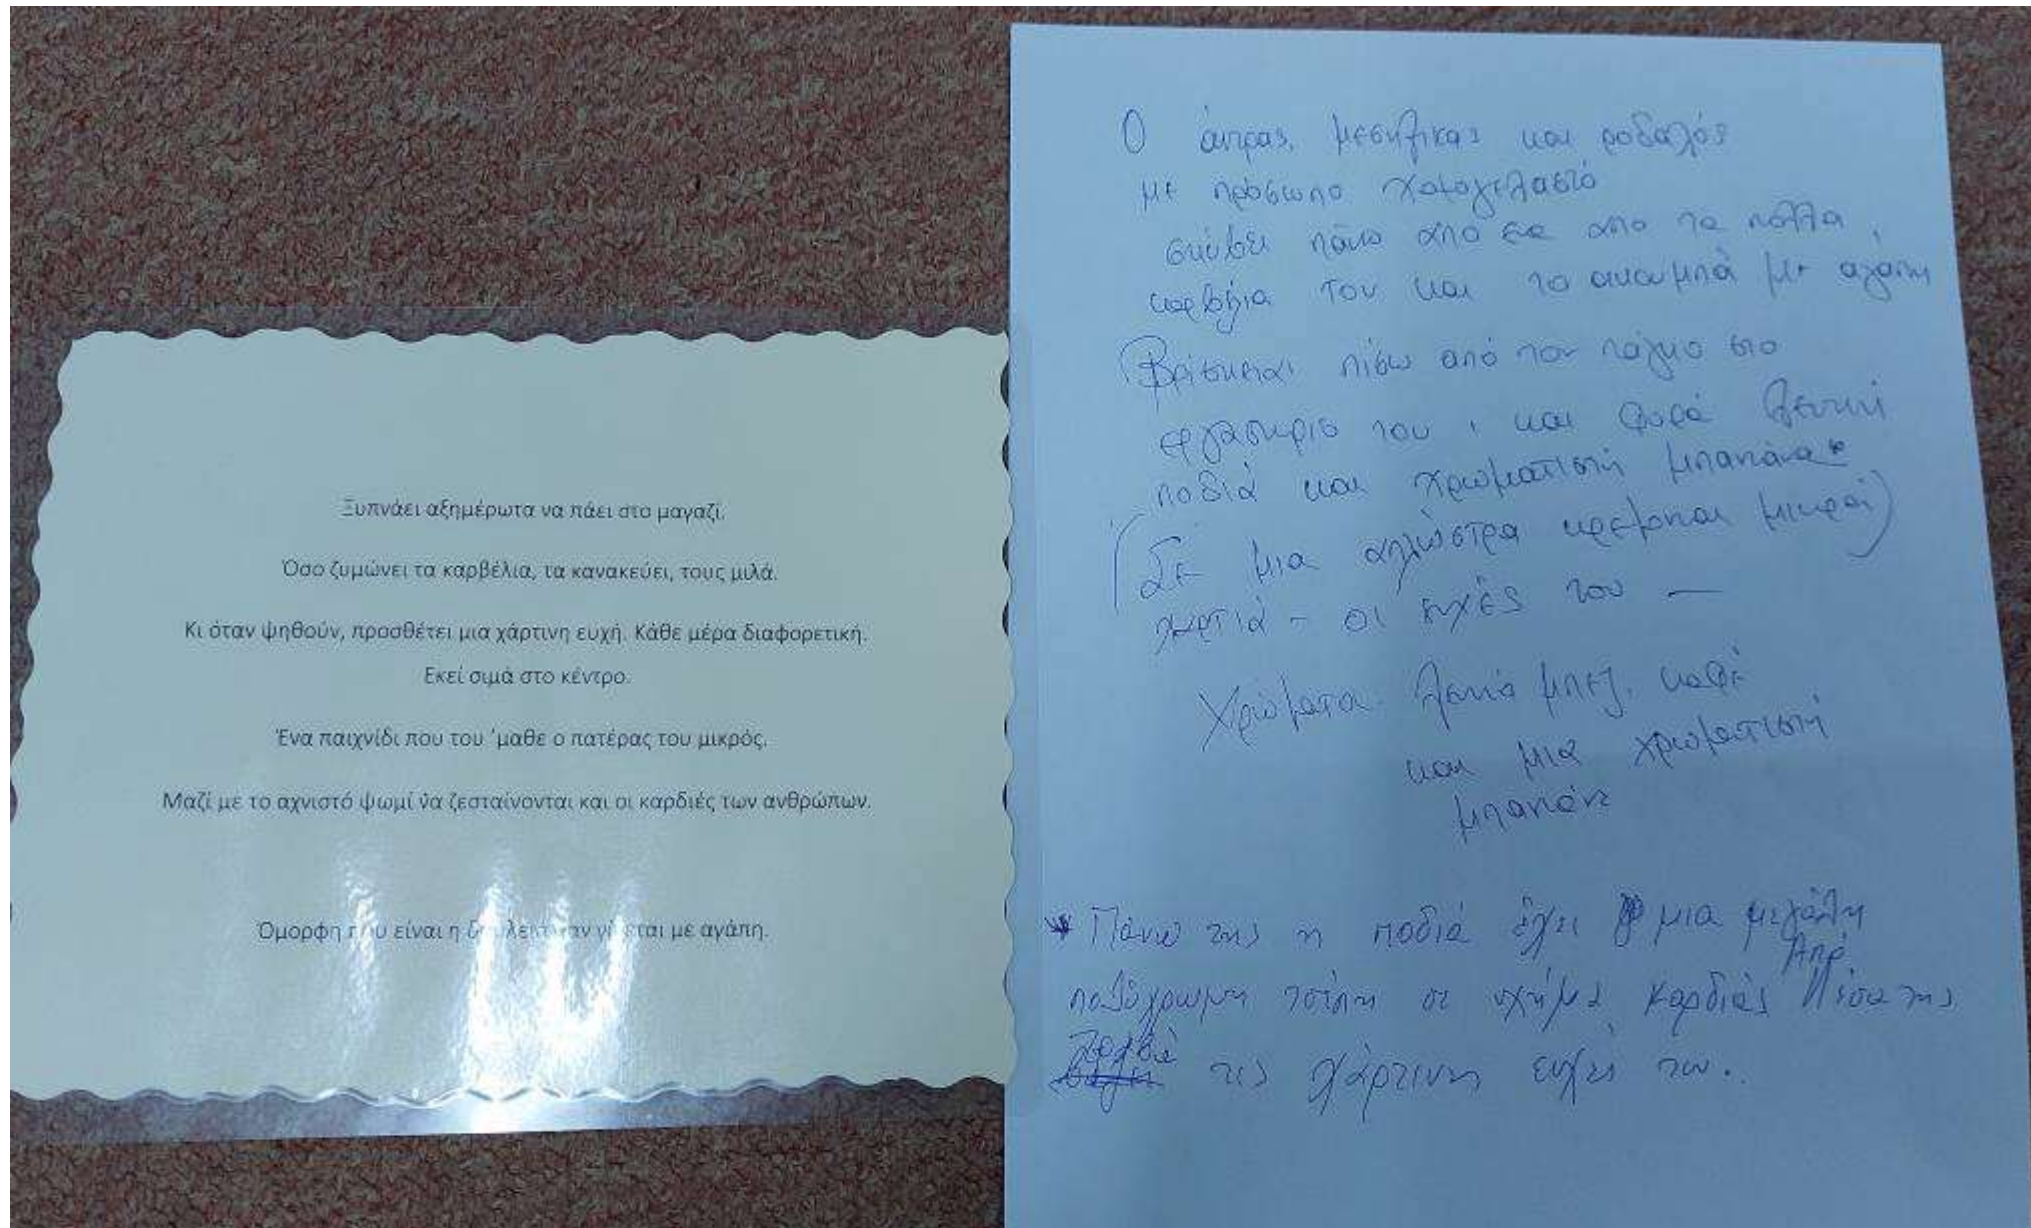 Ξυπνάει αξημέρωτα να πάει στο μαγαζί.
Όσο ζυμώνει τα καρβέλια, τα κανακεύει, τους μιλά.
Κι όταν ψηθούν, προσθέτει μια χάρτινη ευχή. Κάθε μέρα διαφορετική.
Εκεί σιμά στο κέντρο.
Ένα παιχνίδι που του ’μαθε ο πατέρας του μικρός.
Μαζί με το αχνιστό ψωμί να ζεσταίνονται και οι καρδιές των ανθρώπων.
Όμορφη που είναι η δουλειά αν γίνεται με αγάπη.
Ο άντρας, μεσήλικας και ροδαλός
με πρόσωπο χαμογελαστό
σκύβει πάνω από ένα από τα πολλά
καρβέλια του και το ακουμπά με αγάπη
Βρίσκεται πίσω από τον πάγκο στο
εργαστήριο του, και φορά λευκή
ποδιά και χρωματιστή μπαντάνα*
(Σε μια απλώστρα κρέμονται μικρά)
χαρτιά - οι ευχές του —
Χρώματα: λευκό μπεζ, καφέ
και μια χρωματιστή
μπαντάνα
* Πάνω της η ποδιά έχει μια μεγάλη
πολύχρωμη τσέπη σε σχήμα καρδιάς Μέσα της
τις χάρτινες ευχές του.